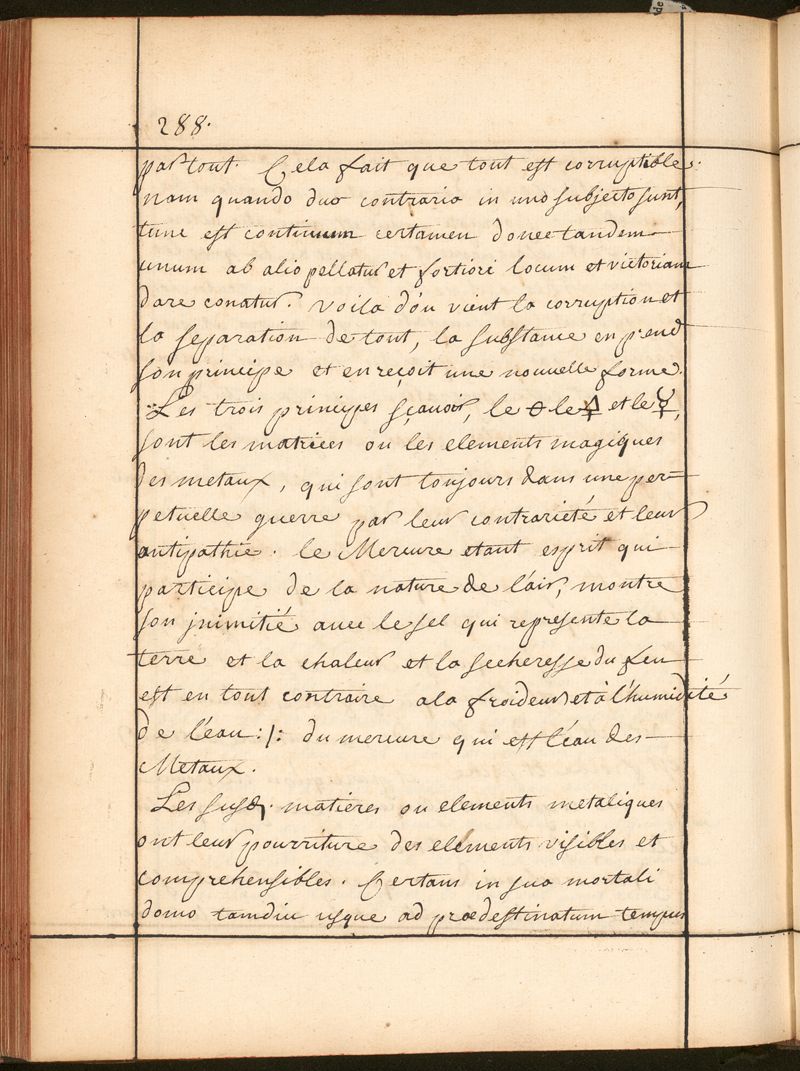 288.
par tout. Cela fait que tout est corruptible.
nam quando duo contraria in uno subjecto sunt,
tunc est continuum certamen donec tandem
unum ab alio pellatur et fortiori locum et victoriam
dare conatur. voila d'ou vient la corruption et
la separation de tout, la substance en prend
son principe et en reçoit une nouvelle forme.
Les trois principes sçavoir, le 🜔 le 🜍 et le ☿,
sont les matrices ou les elements magiques
des metaux, qui sont toujours dans une per-
petuelle guerre par leur contrarieté et leur
antipathie. le Mercure etant esprit qui
participe de la nature de l'air, montre
son jnimitié avec le sel qui represente la
terre et la chaleur et la secheresse du feu
est en tout contraire a la froideur et à l'humidité
de l'eau :/: du mercure qui est l'eau des
Metaux.
Les susd. matieres ou elements metaliques
ont leur pourriture des elements visibles et
comprehensibles. Certans in sua mortali
domo tamdiu usque ad prædestinatum tempus